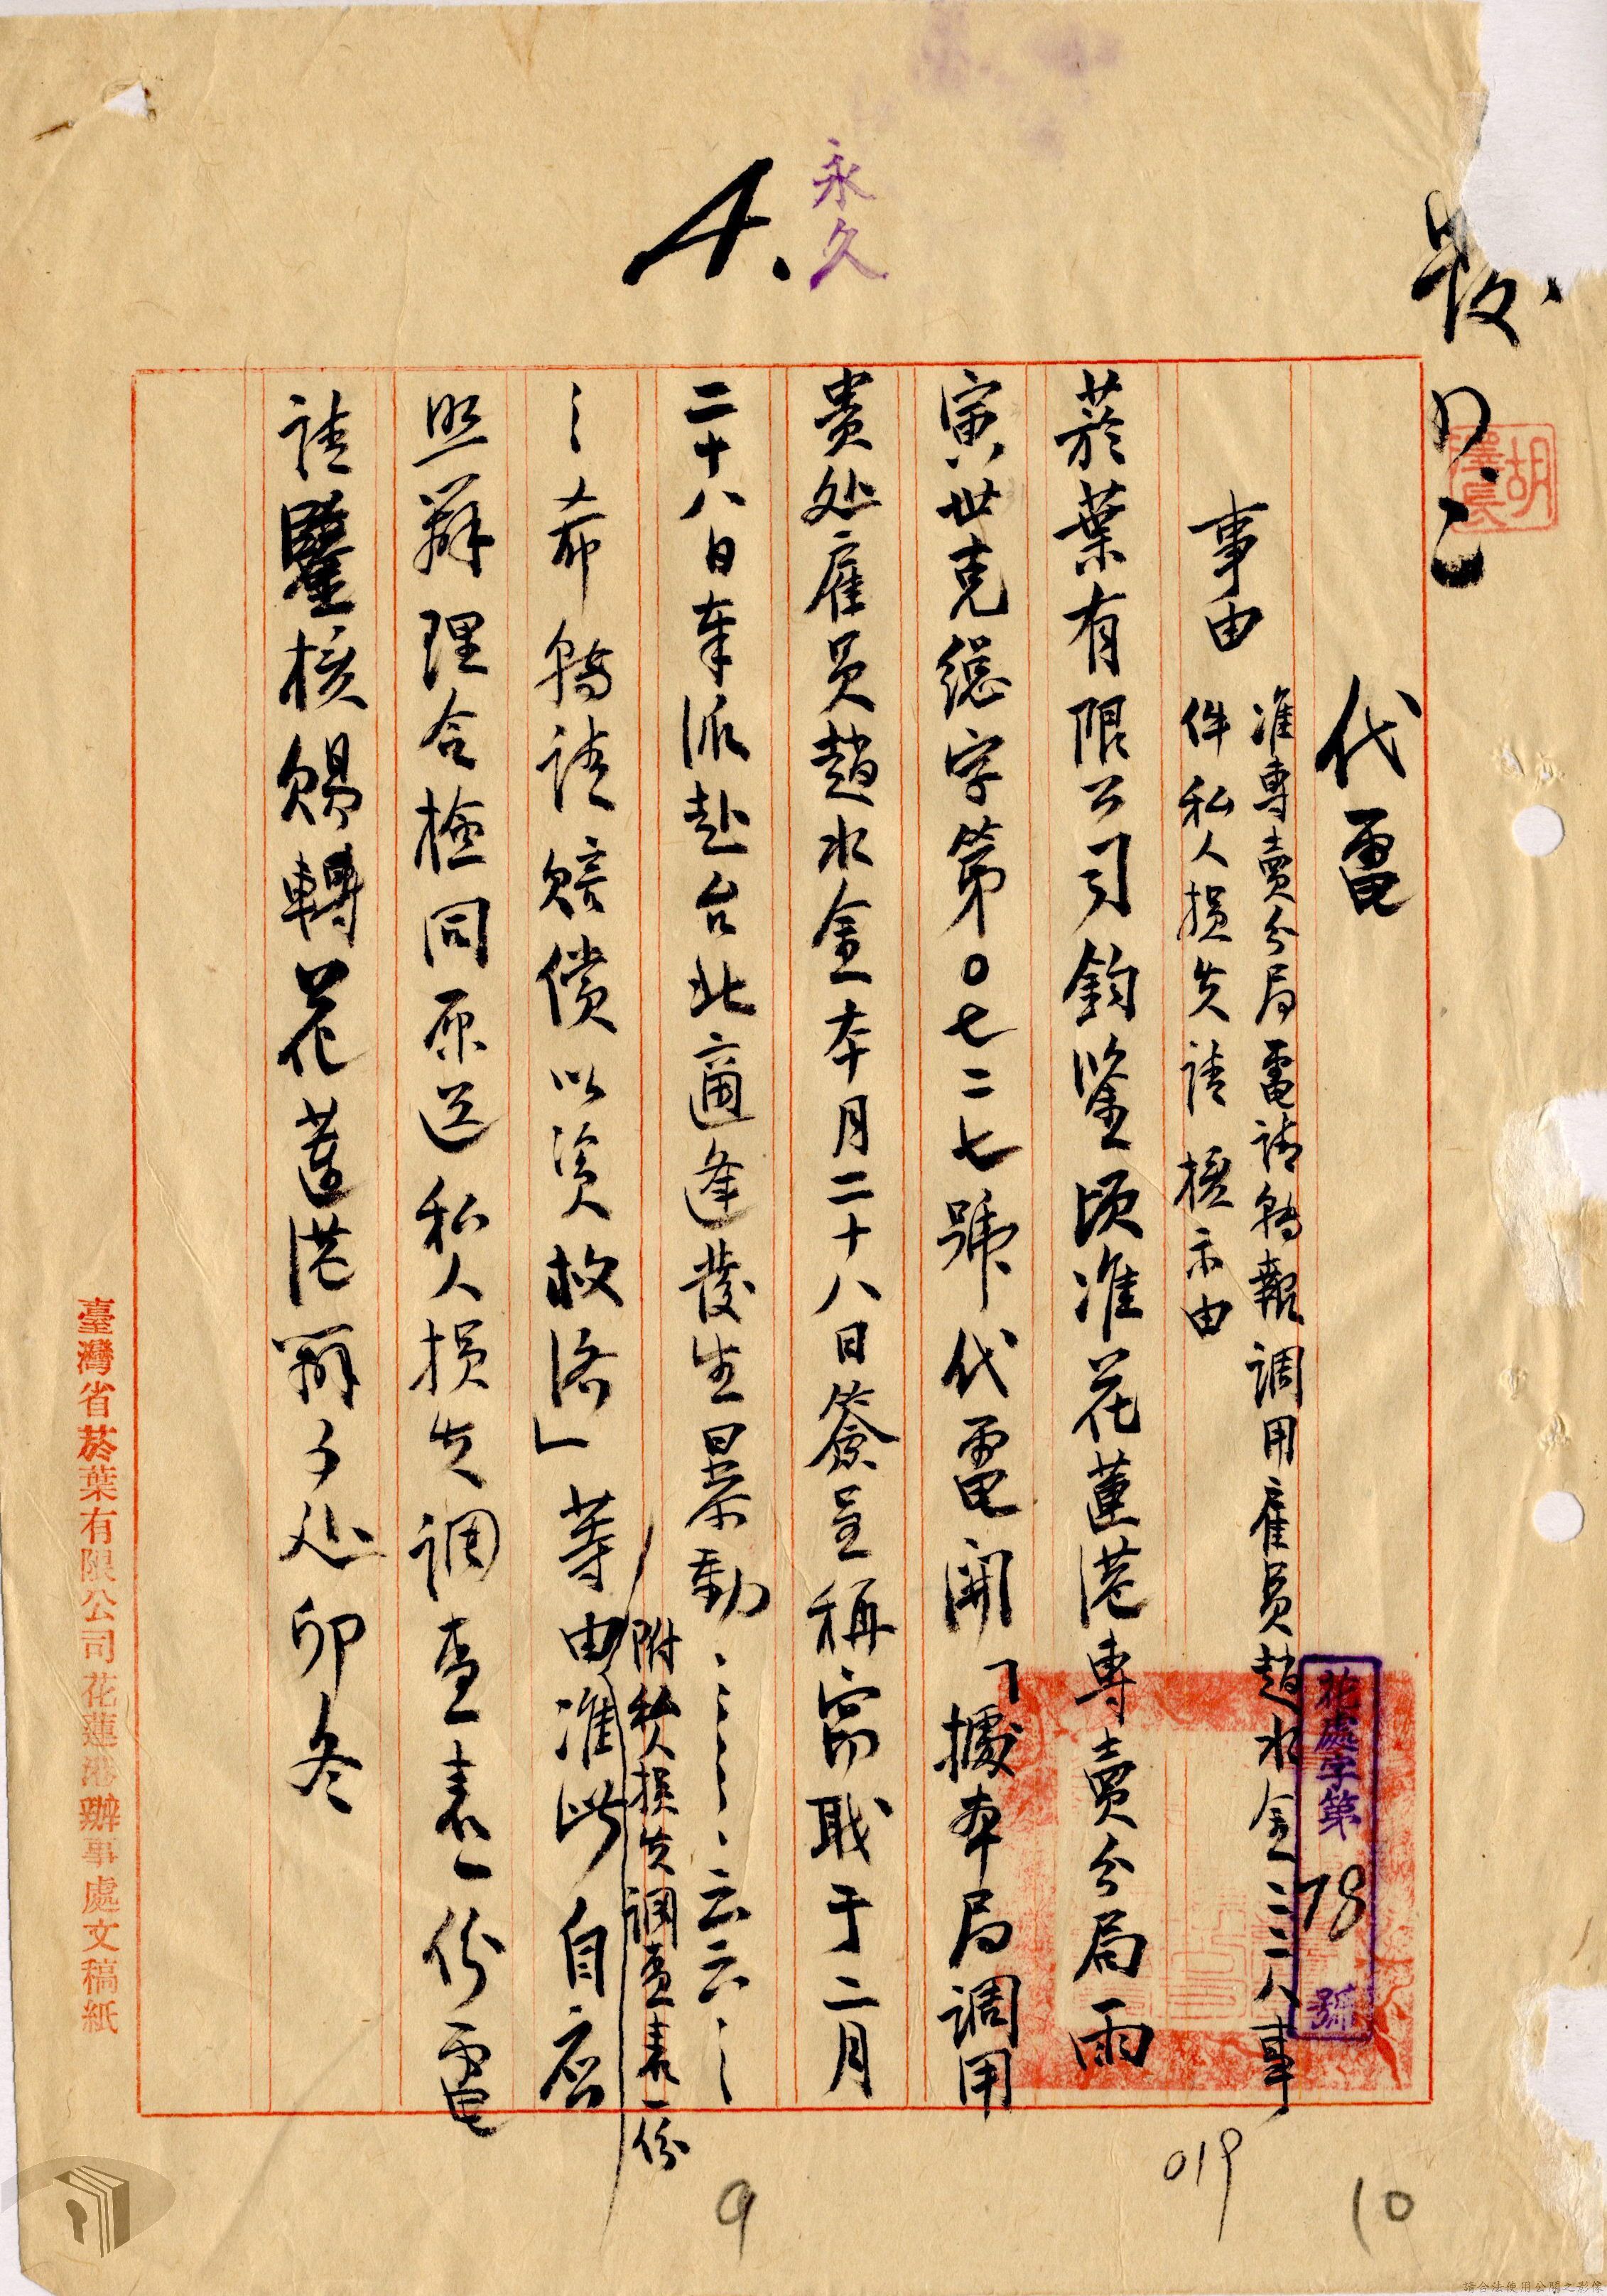 永久
4、
發
四、二
胡
代電
花處字第 78 號
事由
准專賣分局電請轉報調用雇員趙水金二二八事
件私人損失請核示由
菸葉有限公司鈞鑒頃准花蓮港專賣分局雨
寅世克總字第0七二七號代電開「據本局調用
貴处雇員趙水金本月二十八日簽呈稱窃职于二月
二十八日奉派赴台北適逢發生暴動、、、、、、云云、
、希轉請賠償以資救済」等由准此自应
附私人損失調查表一份
照辦理合檢同原送私人損失調查表一份電
請鑒核賜轉花蓮港辦事处卯冬
臺灣省菸葉有限公司花蓮港辦事處文稿紙
019
10
9
請合法使用公開之影像